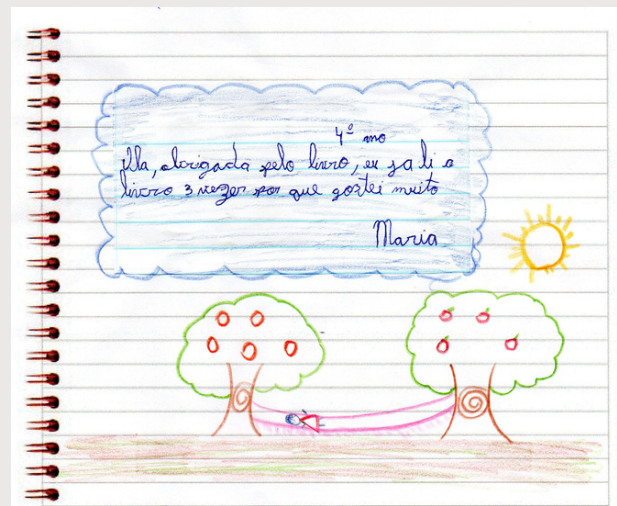 4º ano
Illa, obrigada pelo livro, eu ja li o
livro 3 vezes por que gostei muito
Maria